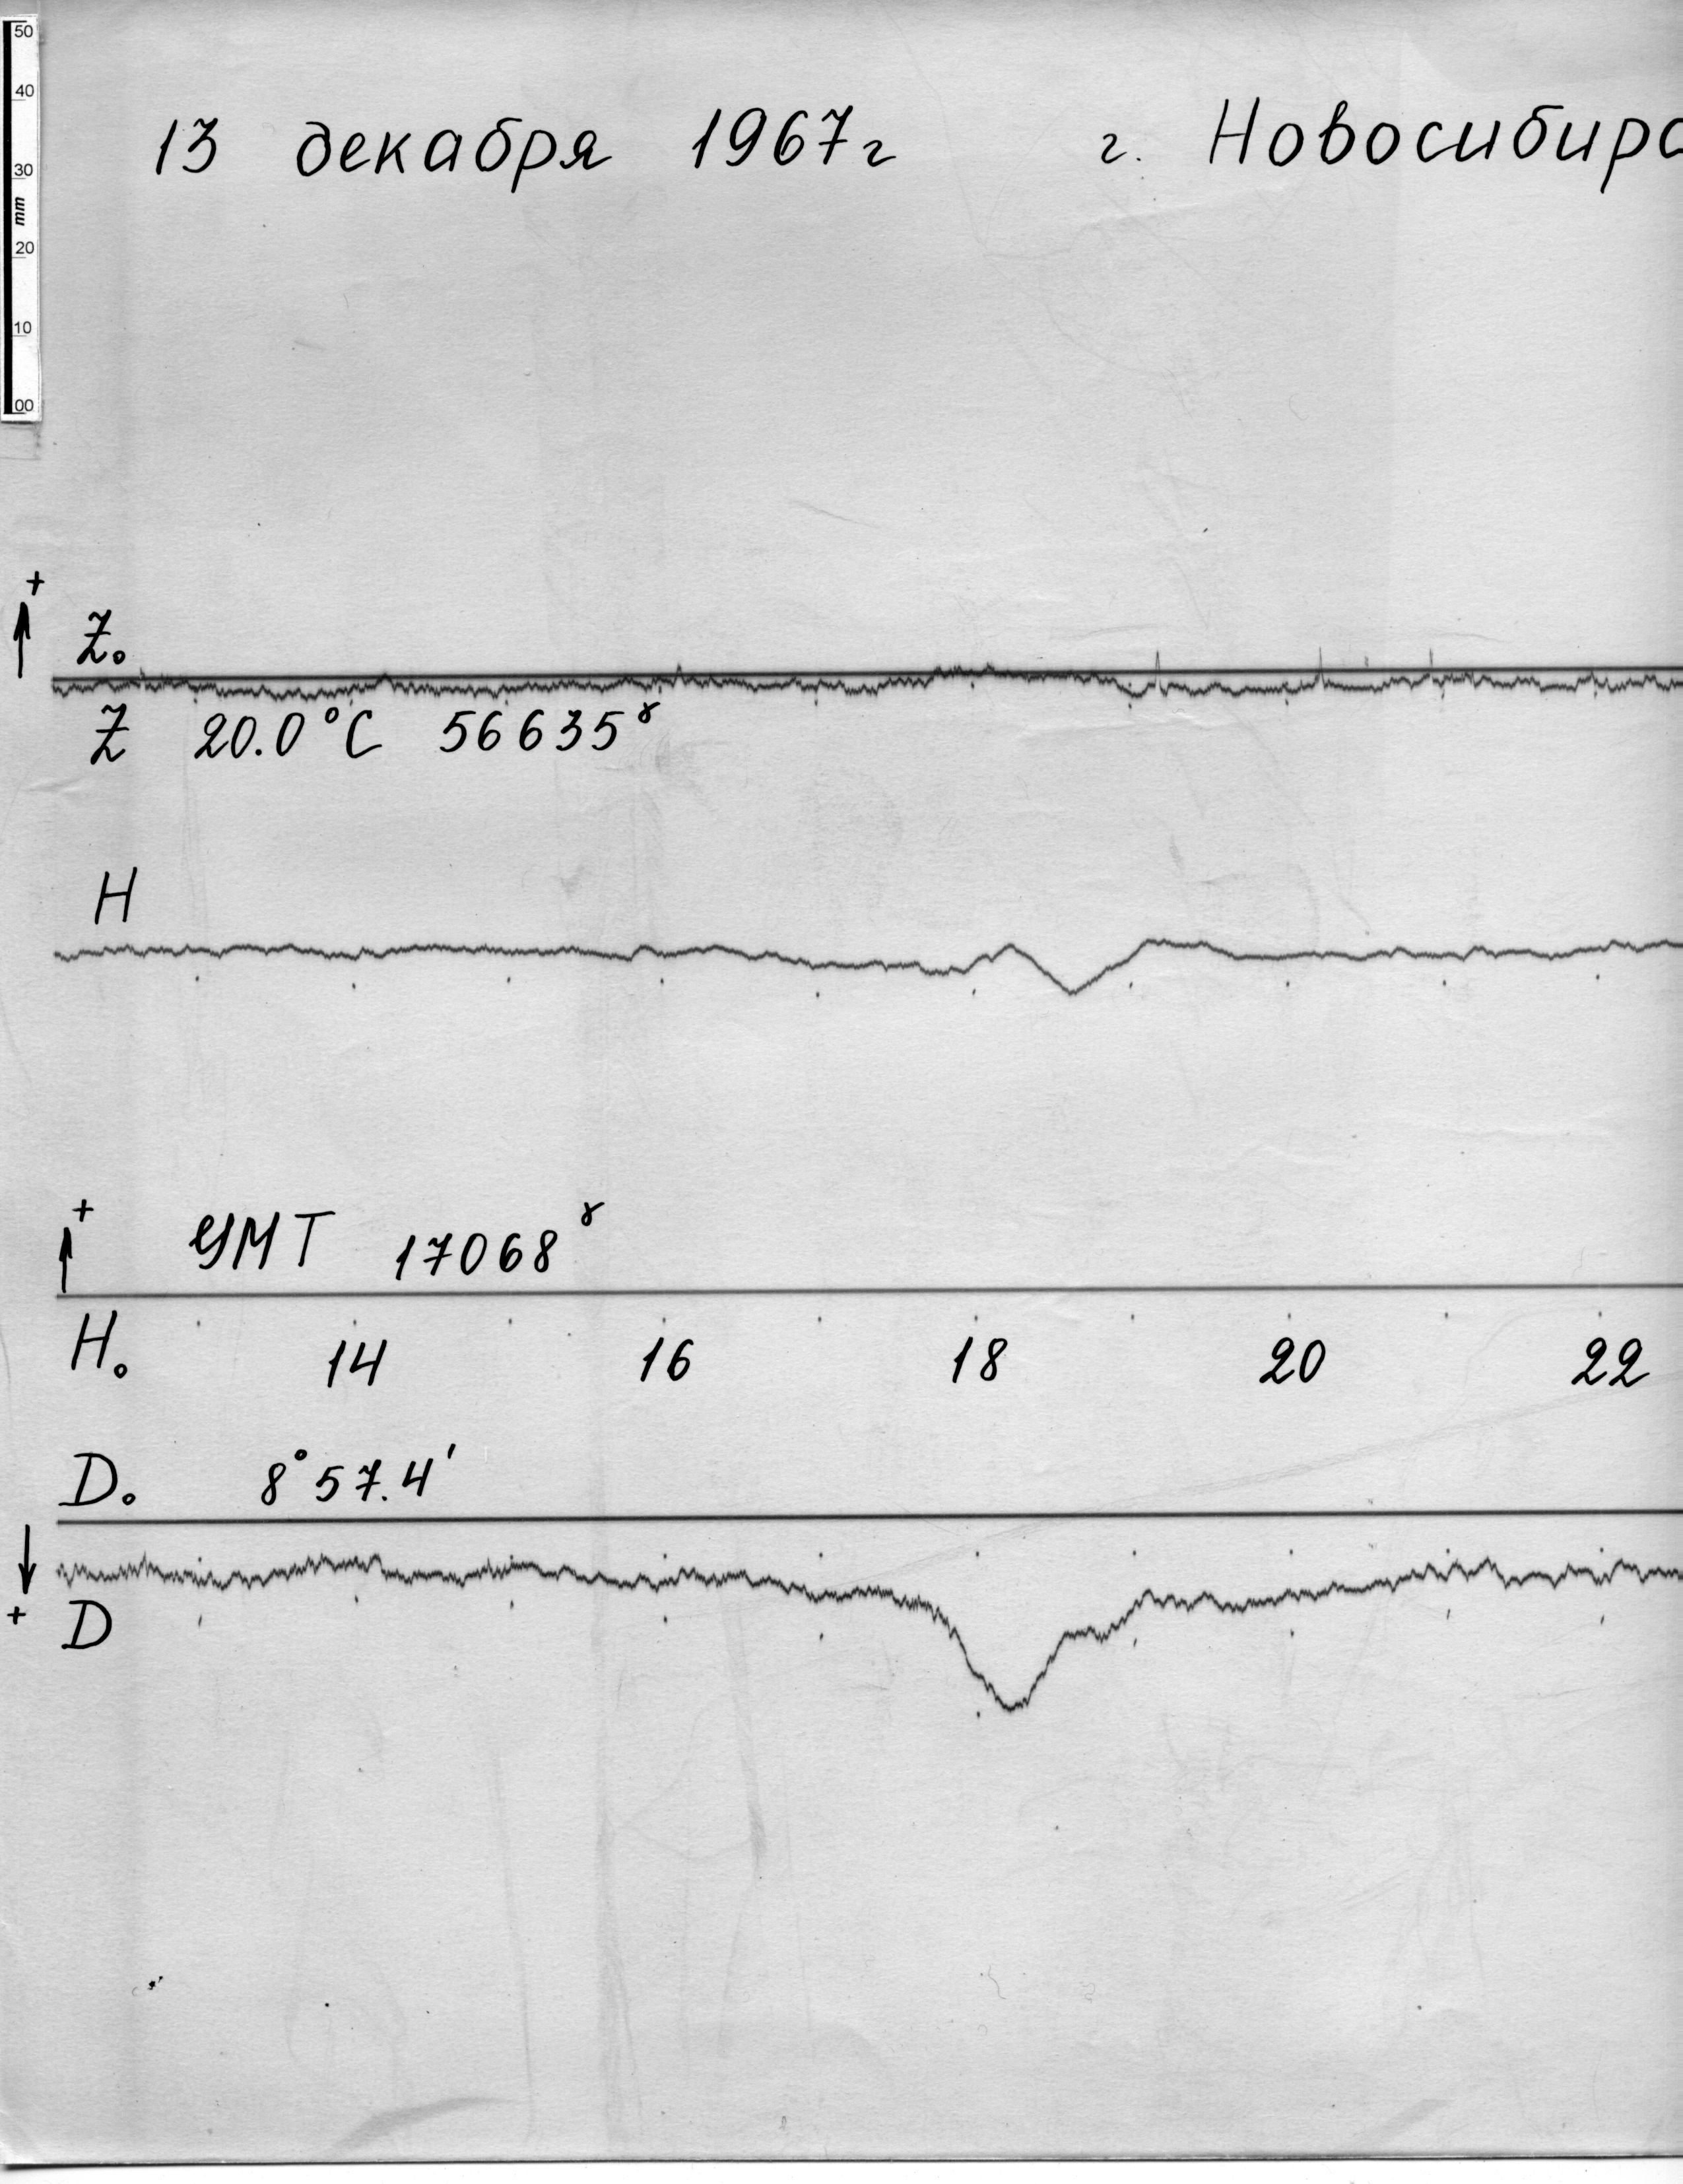 50
40
30
mm
20
10
00
13 декабря 1967г г. Новосибирс
+
Z₀
Z 20.0°C 56635ᵞ
H
+
УМТ 17068ᵞ
H₀ 14 16 18 20 22
D₀ 8°57.4'
+
D